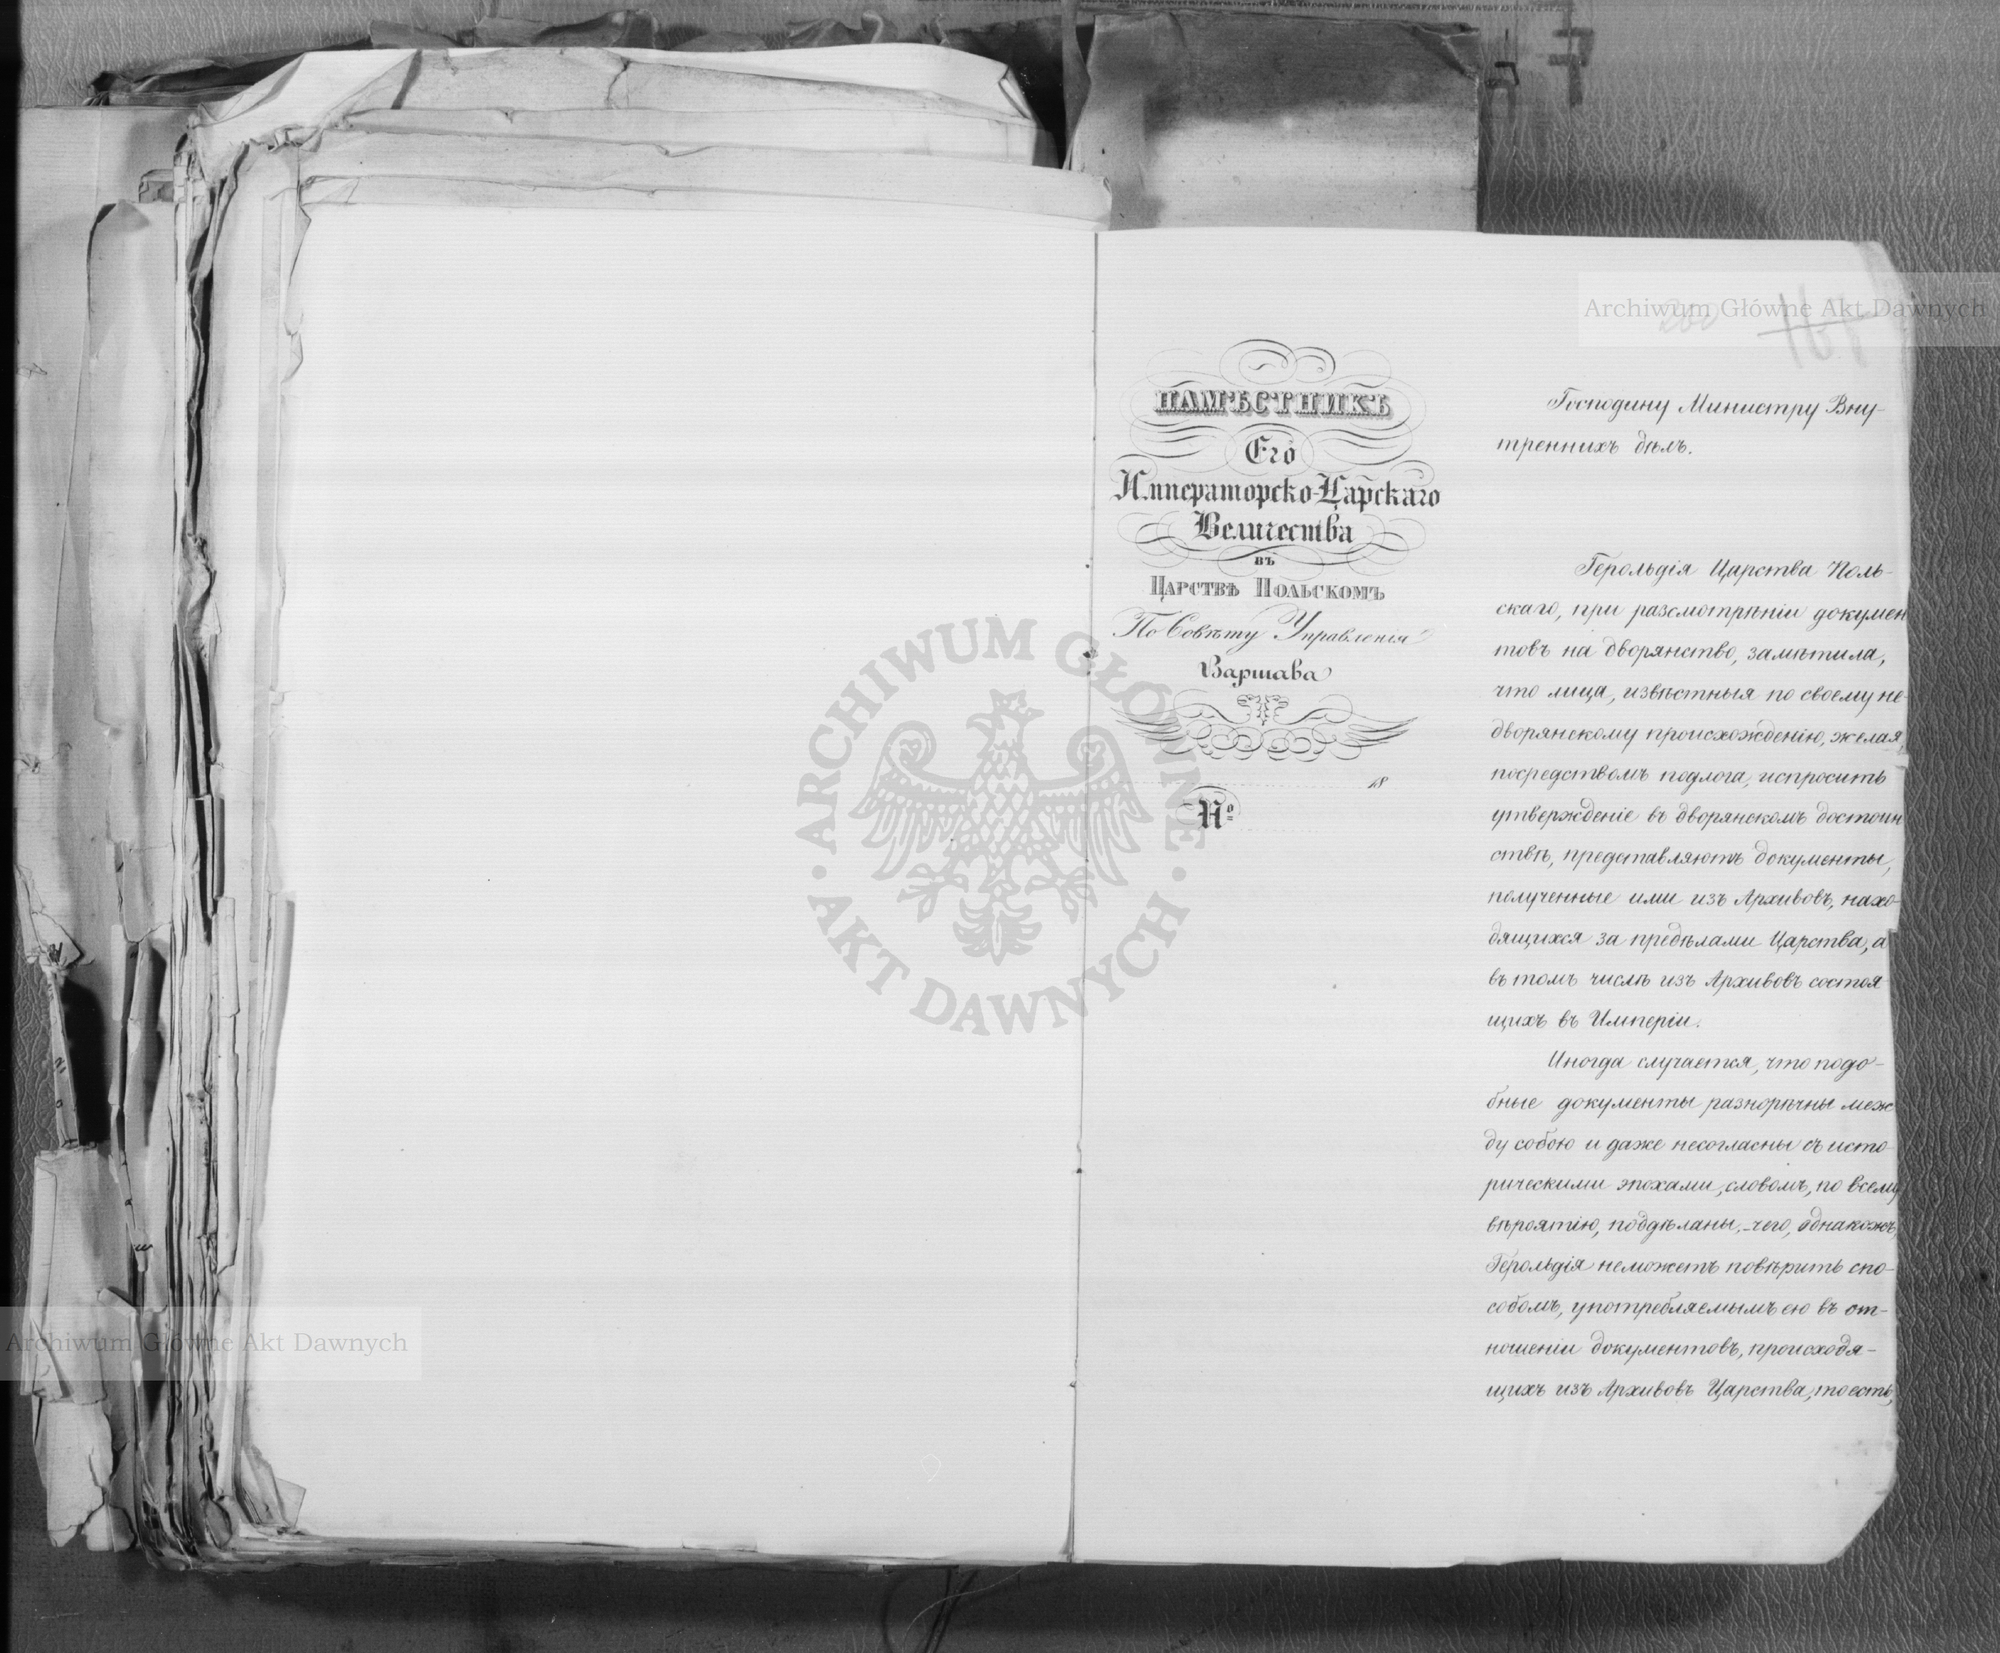 Archiwum Główne Akt Dawnych
200
НАМѢСТНИКЪ
Его
Императорско-Царскаго
Величества
въ
Царствѣ Польскомъ
По Совѣту Управленія
Варшава
18
№
Господину Министру Вну-
треннихъ дѣлъ.
Герольдія Царства Поль-
скаго, при разсмотрѣніи докумен
товъ на дворянство, замѣтила,
что лица, извѣстныя по своему не-
дворянскому происхожденію, желая,
посредствомъ подлога, испросить
утвержденіе въ дворянскомъ достоин
ствѣ, представляютъ документы,
полученные ими изъ Архивовъ, нахо-
дящихся за предѣлами Царства, а
въ томъ числѣ изъ Архивовъ состоя
щихъ въ Имперіи.
Иногда случается, что подо-
бные документы разнорѣчны меж
ду собою и даже несогласны съ исто-
рическими эпохами, словомъ, по всему
вѣроятію, поддѣланы, чего, однакожъ,
Герольдія неможетъ повѣрить спо-
собомъ, употребляемымъ ею въ от-
ношеніи документовъ, происходя-
щихъ изъ Архивовъ Царства, тоесть,
ARCHIWUM GŁÓWNE
AKT DAWNYCH
Archiwum Główne Akt Dawnych